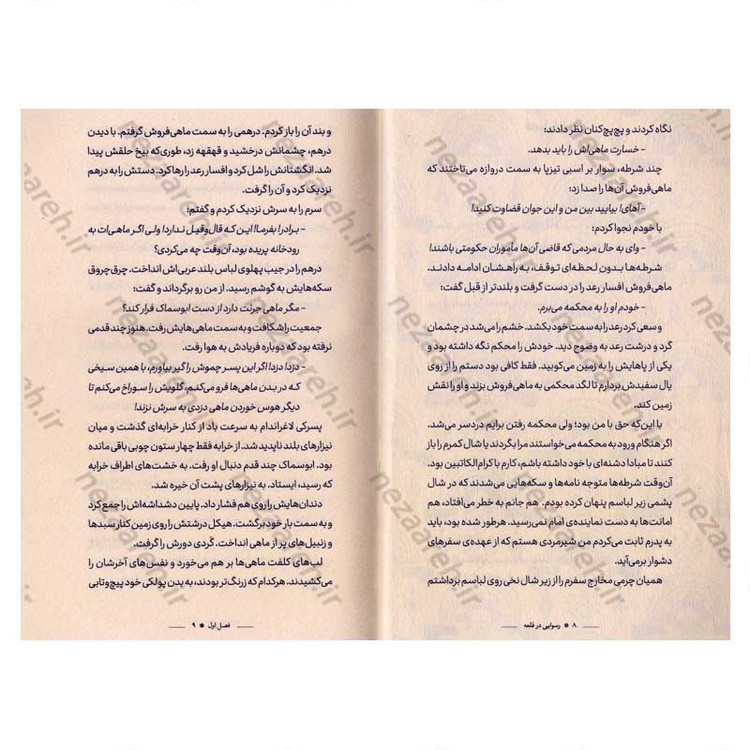 نگاه کردند و پچ‌پچ‌کنان نظر دادند:
- خسارت ماهی‌اش را باید بدهد.
چند شرطه، سوار بر اسبی تیزپا به سمت دروازه می‌تاختند که
ماهی‌فروش آن‌ها را صدا زد:
- آهای! بیایید بین من و این جوان قضاوت کنید!
با خودم نجوا کردم:
- وای به حال مردمی که قاضی آن‌ها مأموران حکومتی باشند!
شرطه‌ها بدون لحظه‌ای توقف، به راهشان ادامه دادند.
ماهی‌فروش افسار رعد را در دست گرفت و بلندتر از قبل گفت:
- خودم او را به محکمه می‌برم.
و سعی کرد رعد را به سمت خود بکشد. خشم را می‌شد در چشمان
گرد و درشت رعد به وضوح دید. خودش را محکم نگه داشته بود و
یکی از پاهایش را به زمین می‌کوبید. فقط کافی بود دستم را از روی
یال سفیدش بردارم تا لگد محکمی به ماهی‌فروش بزند و او را نقش
زمین کند.
با این‌که حق با من بود؛ ولی محکمه رفتن برایم دردسر می‌شد.
اگر هنگام ورود به محکمه می‌خواستند مرا بگردند یا شال کمرم را باز
کنند تا مبادا دشنه‌ای با خود داشته باشم، کارم با کرام‌الکاتبین بود.
آن‌وقت شرطه‌ها متوجه نامه‌ها و سکه‌هایی می‌شدند که در شال
پشمی زیر لباسم پنهان کرده بودم. هم جانم به خطر می‌افتاد، هم
امانت‌ها به دست نماینده‌ی امام نمی‌رسید. هرطور شده بود، باید
به پدرم ثابت می‌کردم من شیرمردی هستم که از عهده‌ی سفرهای
دشوار برمی‌آید.
همیان چرمی مخارج سفرم را از زیر شال نخی روی لباسم برداشتم
۸ ● رسوایی در قلعه
و بند آن را باز کردم. درهمی را به سمت ماهی‌فروش گرفتم. با دیدن
درهم، چشمانش درخشید و قهقهه زد، طوری‌که بیخ حلقش پیدا
شد. انگشتانش را شل کرد و افسار رعد را رها کرد. دستش را به درهم
نزدیک کرد و آن را گرفت.
سرم را به سرش نزدیک کردم و گفتم:
- برادر! بفرما! این که قال‌وقیل ندارد! ولی اگر ماهی‌ات به
رودخانه پریده بود، آن‌وقت چه می‌کردی؟
درهم را در جیب پهلوی لباس بلند عربی‌اش انداخت. چرق‌چروق
سکه‌هایش به گوشم رسید. از من رو برگرداند و گفت:
- مگر ماهی جرئت دارد از دست ابوسماک فرار کند؟
جمعیت را شکافت و به سمت ماهی‌هایش رفت. هنوز چند قدمی
نرفته بود که دوباره فریادش به هوا رفت.
- دزد! دزد! اگر این پسر چموش را گیر بیاورم، با همین سیخی
که در بدن ماهی‌ها فرو می‌کنم، گلویش را سوراخ می‌کنم تا
دیگر هوس خوردن ماهی دزدی به سرش نزند!
پسرکی لاغراندام به سرعت باد از کنار خرابه‌ای گذشت و میان
نیزارهای بلند ناپدید شد. از خرابه فقط چهار ستون چوبی باقی مانده
بود. ابوسماک چند قدم دنبال او رفت. به خشت‌های اطراف خرابه
که رسید، ایستاد. به نیزارهای پشت آن خیره شد.
دندان‌هایش را روی هم فشار داد. پایین دشداشه‌اش را جمع کرد
و به سمت بار خود برگشت. هیکل درشتش را روی زمین کنار سبدها
و زنبیل‌های پر از ماهی انداخت. گَردی دورش را گرفت.
لب‌های کلفت ماهی‌ها بر هم می‌خورد و نفس‌های آخرشان را
می‌کشیدند. هرکدام که زرنگ‌تر بودند، به بدن پولکی خود پیچ‌وتابی
فصل اول ● ۹
nezaareh.ir